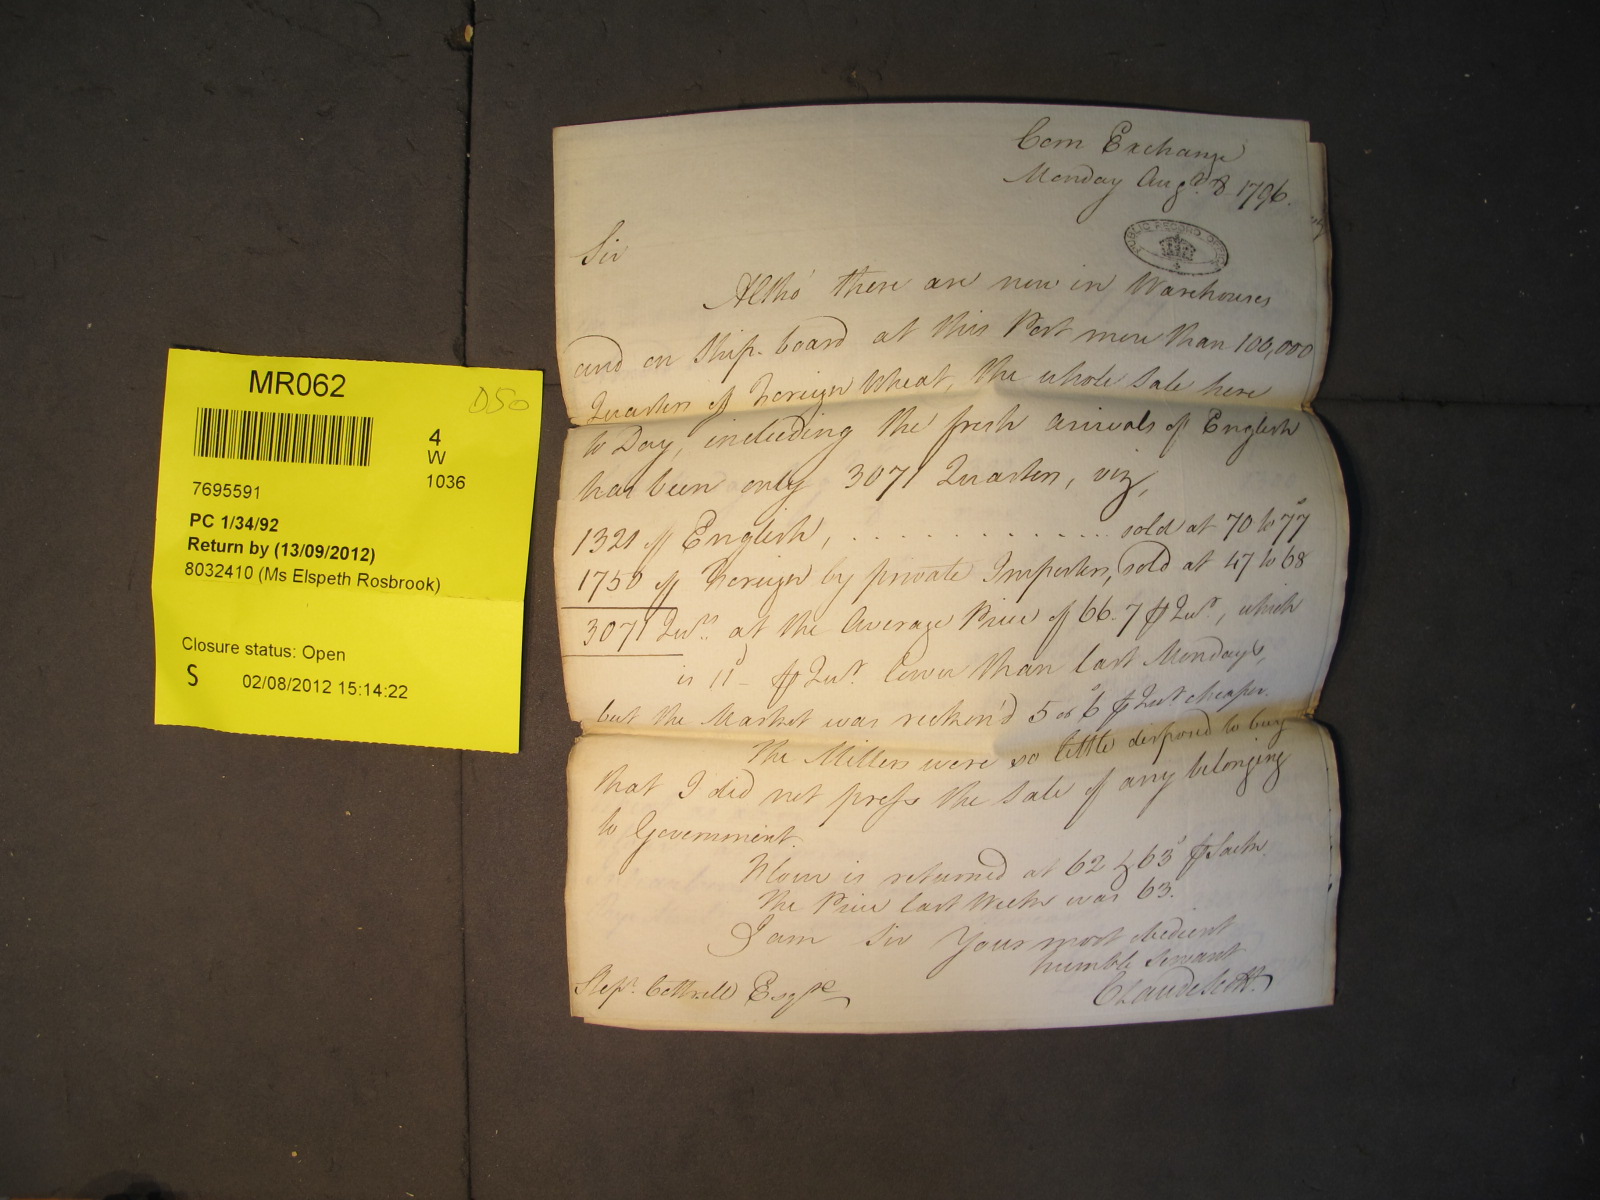 MR062
D50
4
W
1036
7695591
PC 1/34/92
Return by (13/09/2012)
8032410 (Ms Elspeth Rosbrook)
Closure status: Open
S
02/08/2012 15:14:22
Corn Exchange
Monday Augt. 8 1796.
PUBLIC RECORD OFFICE
Sir
Altho' there are now in Warehouses
and on Ship-board at this Port more than 100,000
Quarters of Foreign Wheat, the whole Sale here
to Day, including the fresh arrivals of English
has been only 3071 Quarters, viz,
1321 of English, . . . . . . . . . . . . . . sold at 70 to 77s
1750 of Foreign by private Importers, sold at 47 to 68
3071 Qurs. at the Average Price of 66.7 ⅌ Qur., which
is 11d ⅌ Qur. lower than last Monday's,
but the Market was reckon'd 5 or 6s ⅌ Qur cheaper.
The Millers were so little disposed to buy
that I did not press the Sale of any belonging
to Government.
Flour is returned at 62 & 63s ⅌ Sack.
The Price last Week was 63.
I am Sir Your most obedient
humble Servant
Claude Scott.
Stepn. Cottrell Esqre